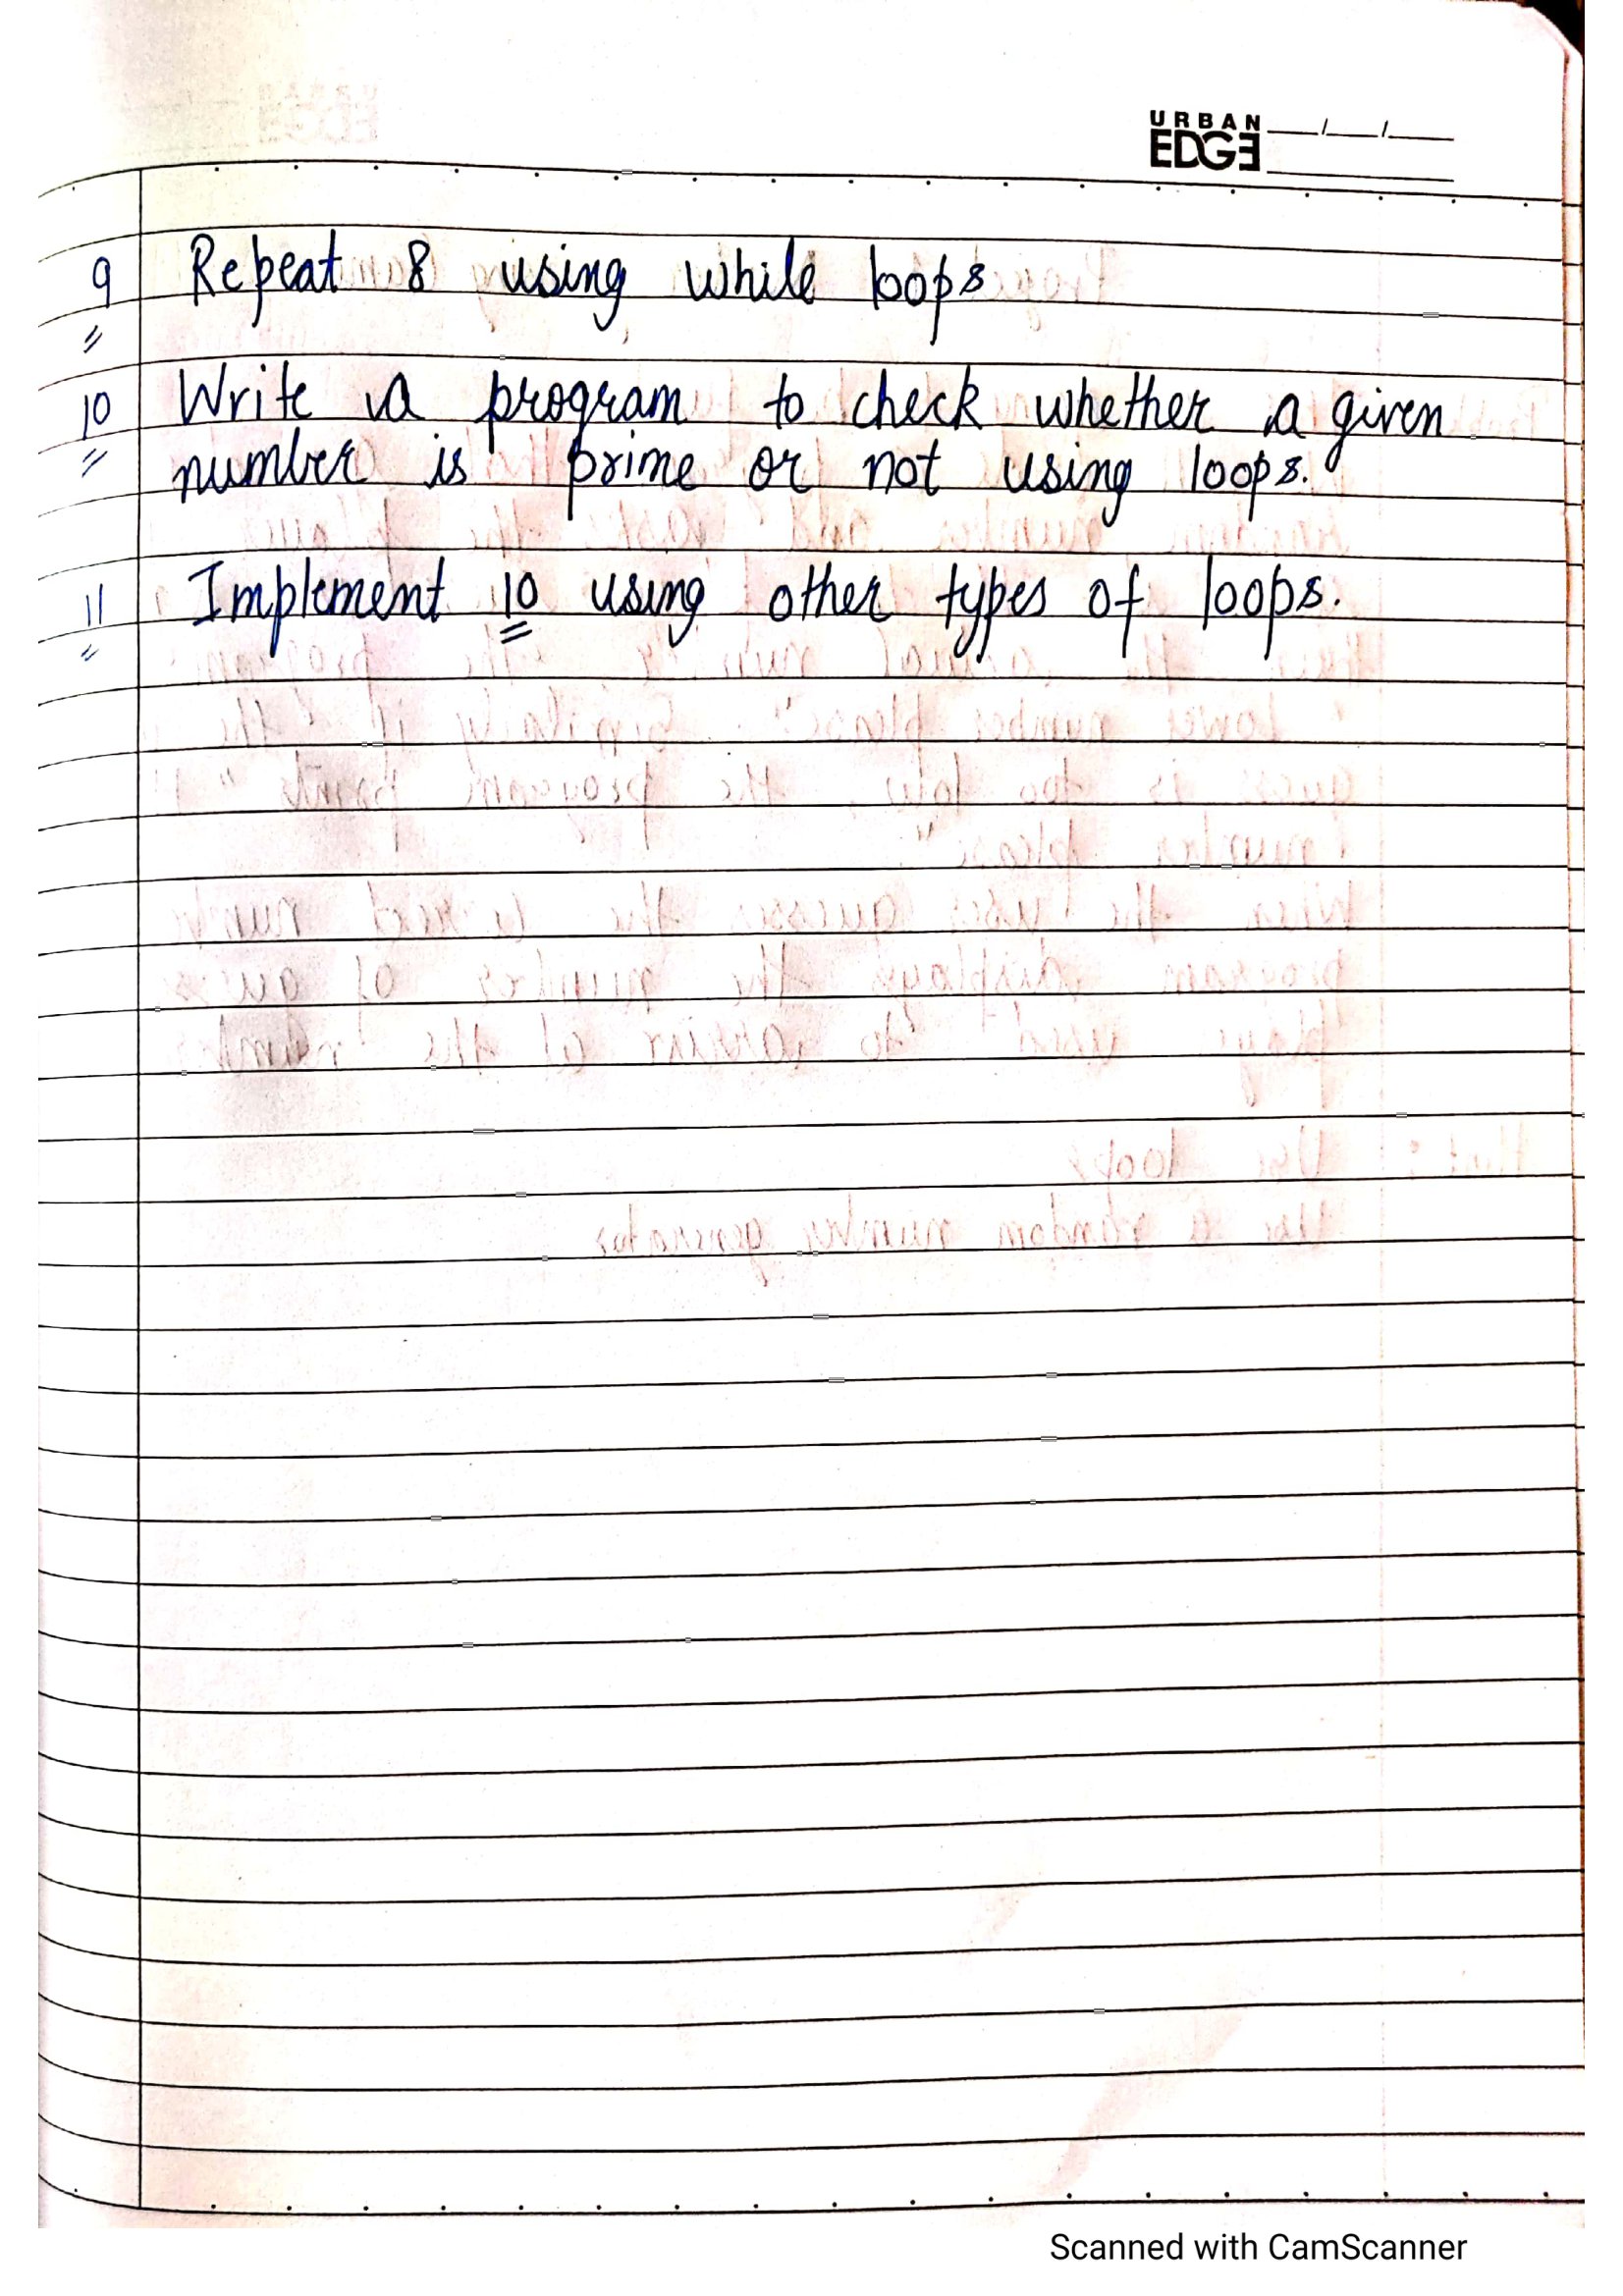 URBAN
EDGE
9 Repeat 8 using while loops
10 Write a program to check whether a given
number is prime or not using loops.
11 Implement 10 using other types of loops.
Scanned with CamScanner